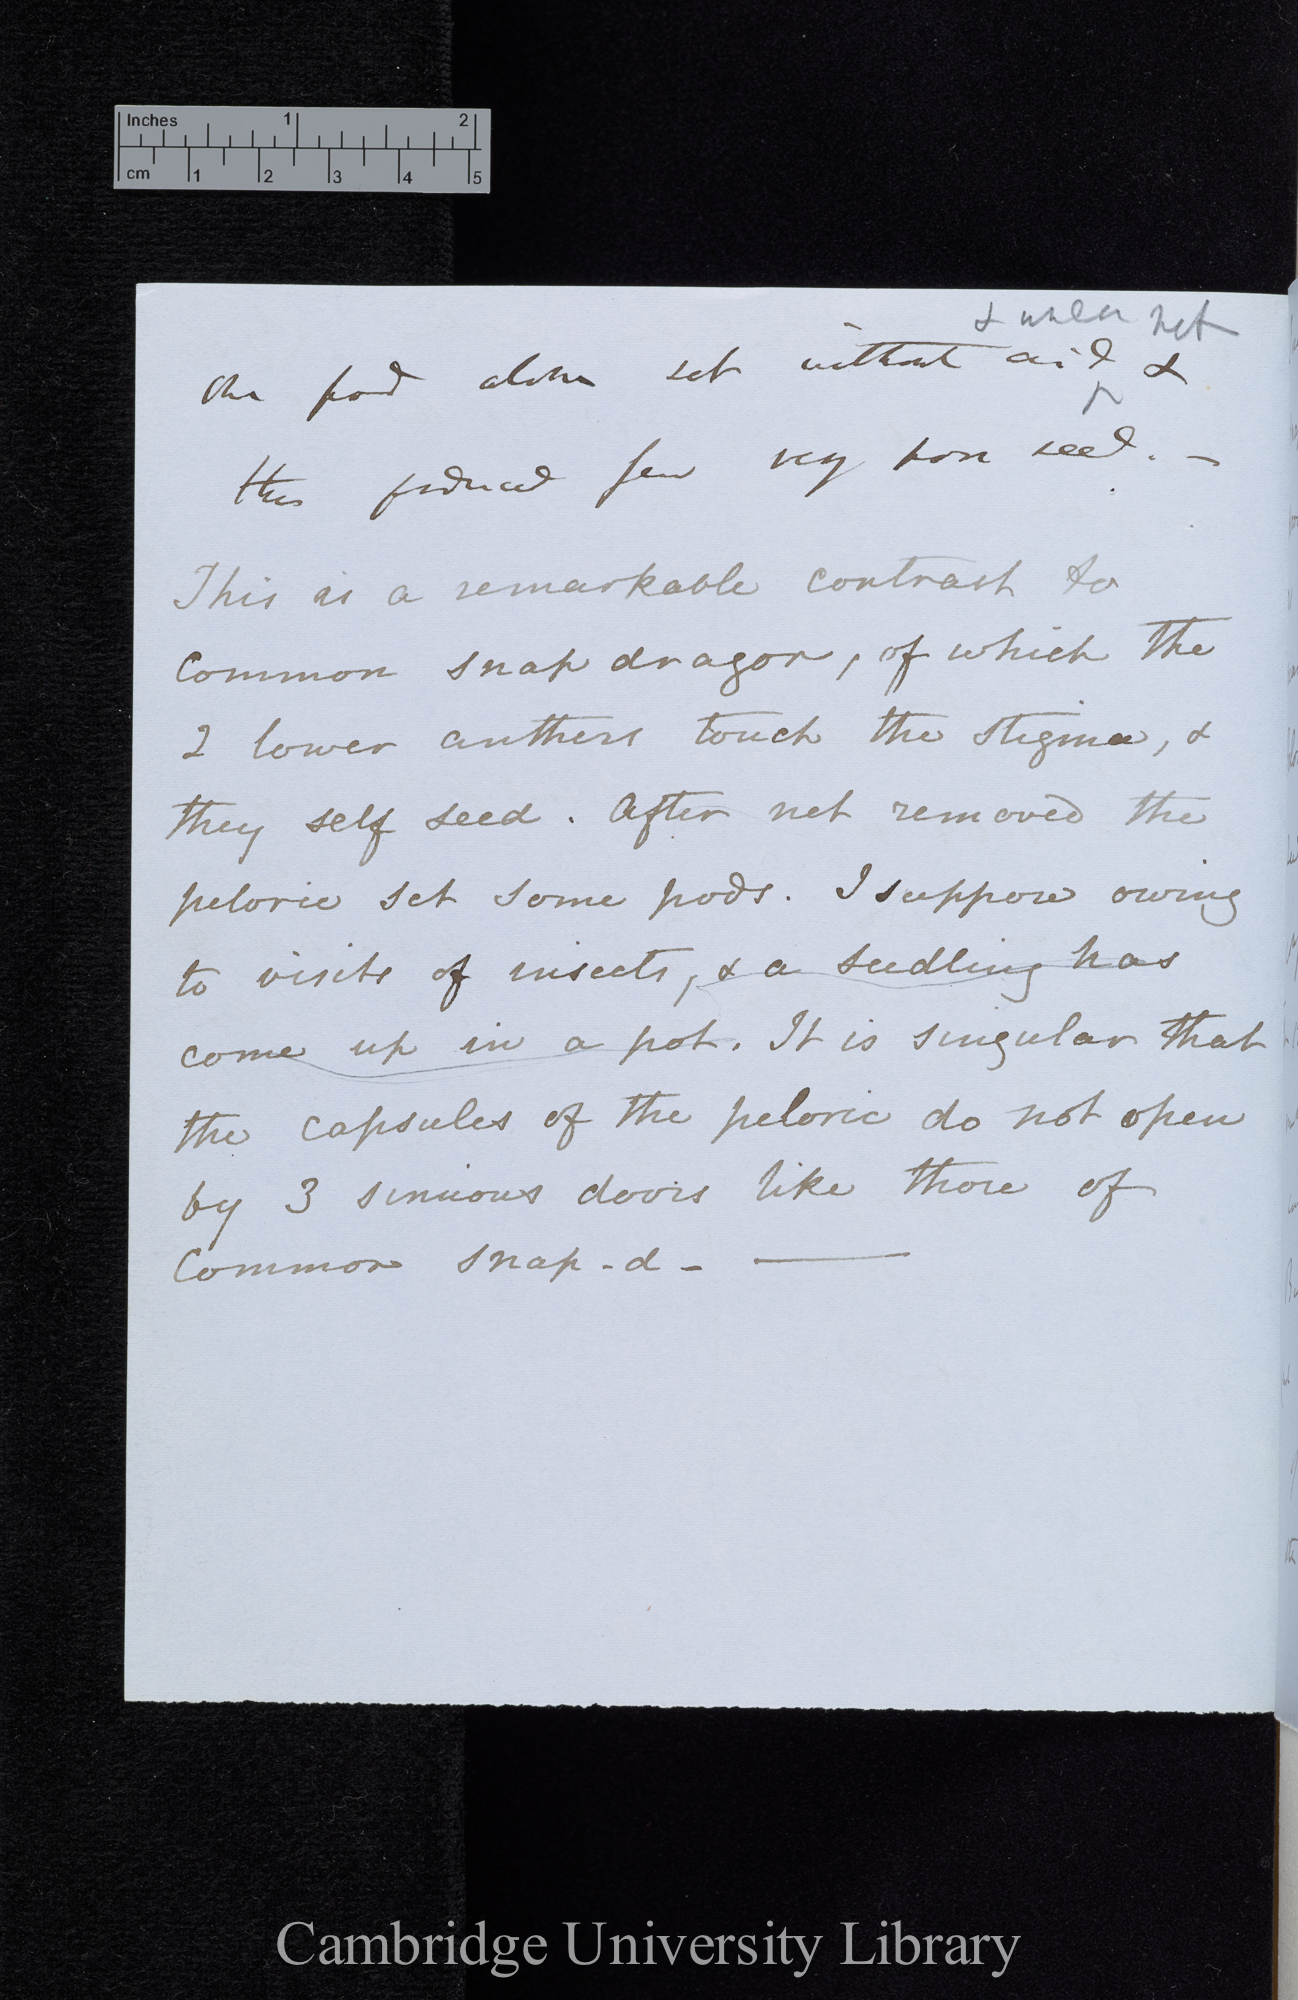 Inches 1 2
cm 1 2 3 4 5
& under net
One pod alone set without aid &
this produced few very poor seed. —
This is a remarkable contrast to
common snap dragon, of which the
2 lower anthers touch the stigma, &
they self seed. After net removed the
peloric set some pods. I suppose owing
to visits of insects, & a seedling has
come up in a pot. It is singular that
the capsules of the peloric do not open
by 3 sinuous doors like those of
Common snap-d- ——
Cambridge University Library